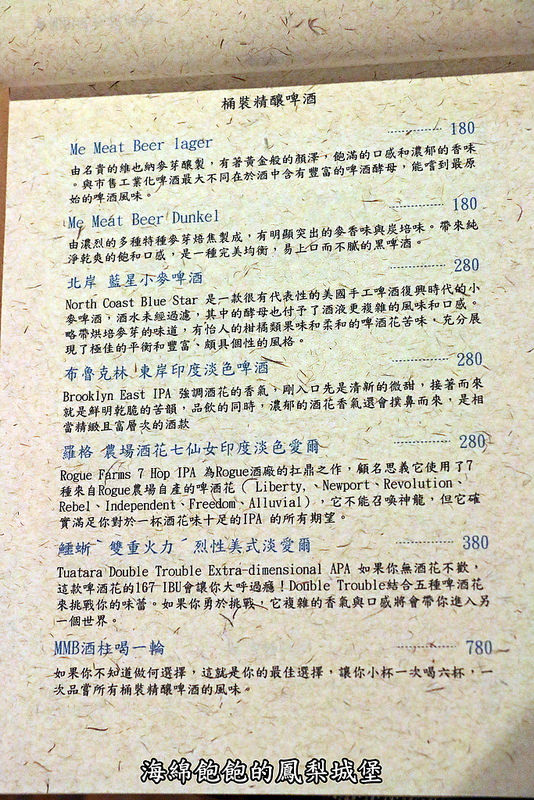 桶裝精釀啤酒
Me Meat Beer lager 180
由名貴的維也納麥芽釀製，有著黃金般的顏澤，飽滿的口感和濃郁的香味
。與市售工業化啤酒最大不同在於酒中含有豐富的啤酒酵母，能嘗到最原
始的啤酒風味。
Me Meat Beer Dunkel 180
由濃烈的多種特種麥芽焙焦製成，有明顯突出的麥香味與炭焙味。帶來純
淨乾爽的飽和口感，是一種完美均衡，易上口而不膩的黑啤酒。
北岸 藍星小麥啤酒 280
North Coast Blue Star 是一款很有代表性的美國手工啤酒復興時代的小
麥啤酒，酒水未經過濾，其中的酵母也付予了酒液更複雜的風味和口感。
略帶烘培麥芽的味道，有怡人的柑橘類果味和柔和的啤酒花苦味，充分展
現了極佳的平衡和豐富、頗具個性的風格。
布魯克林 東岸印度淡色啤酒 280
Brooklyn East IPA 強調酒花的香氣，剛入口先是清新的微甜，接著而來
就是鮮明乾脆的苦韻，品飲的同時，濃郁的酒花香氣還會撲鼻而來，是相
當精緻且富層次的酒款
羅格 農場酒花七仙女印度淡色愛爾 280
Rogue Farms 7 Hop IPA 為Rogue酒廠的扛鼎之作，顧名思義它使用了7
種來自Rogue農場自產的啤酒花（ Liberty,、Newport、Revolution、
Rebel、Independent、Freedom、Alluvial），它不能召喚神龍，但它確
實滿足你對於一杯酒花味十足的IPA 的所有期望。
鱷蜥〝雙重火力〞烈性美式淡愛爾 380
Tuatara Double Trouble Extra-dimensional APA 如果你無酒花不歡，
這款啤酒花的167 IBU會讓你大呼過癮！Double Trouble結合五種啤酒花
來挑戰你的味蕾。如果你勇於挑戰，它複雜的香氣與口感將會帶你進入另
一個世界。
MMB酒柱喝一輪 780
如果你不知道做何選擇，這就是你的最佳選擇，讓你小杯一次喝六杯，一
次品嘗所有桶裝精釀啤酒的風味。
海綿飽飽的鳳梨城堡